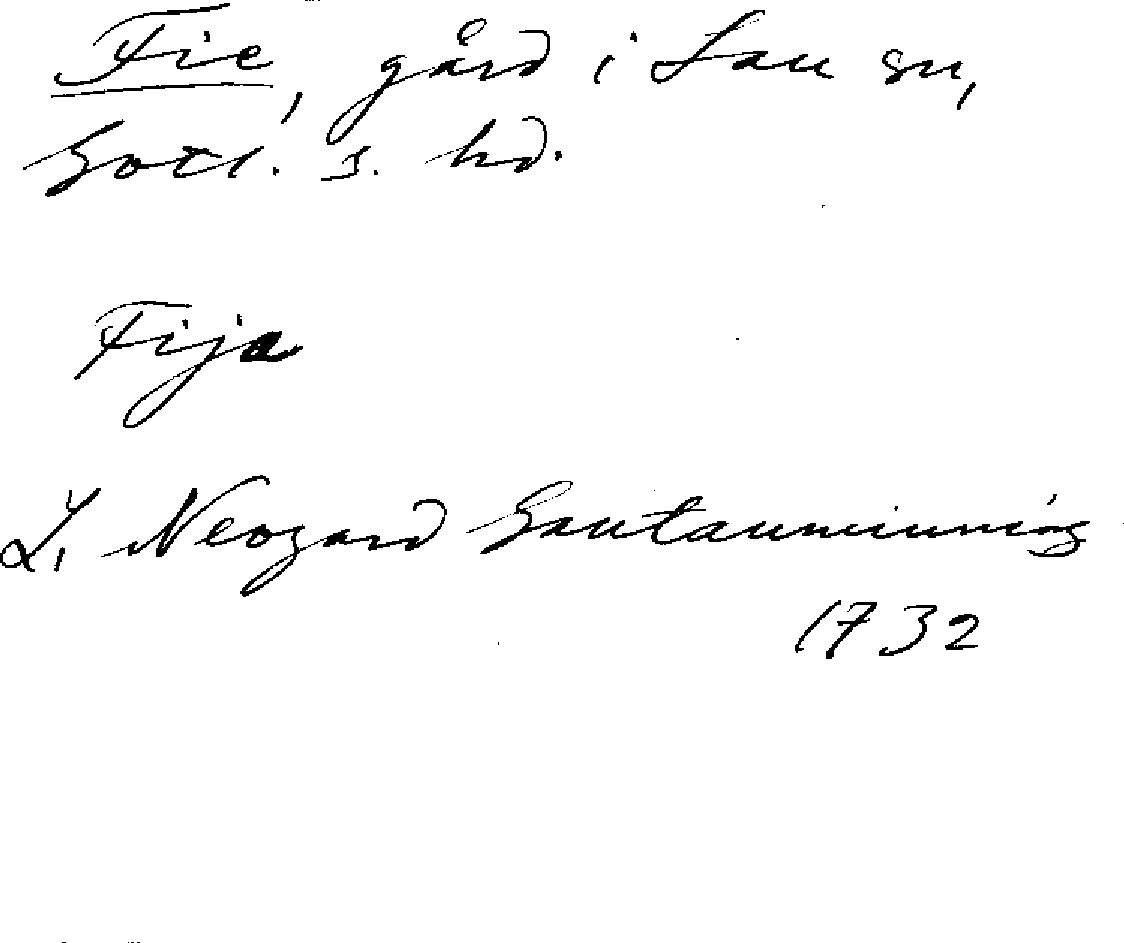 Fie, gård i Lau sn,
Gotl. s. hd.
Fija
L. Neogard Gautauminning
1732